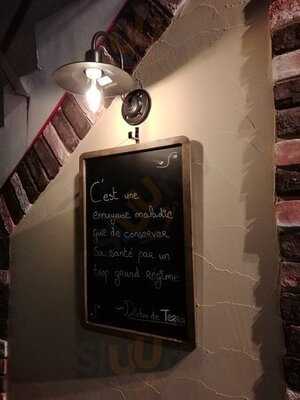 C'est une
ennuyeuse maladie
que de conserver
sa santé par un
trop grand régime